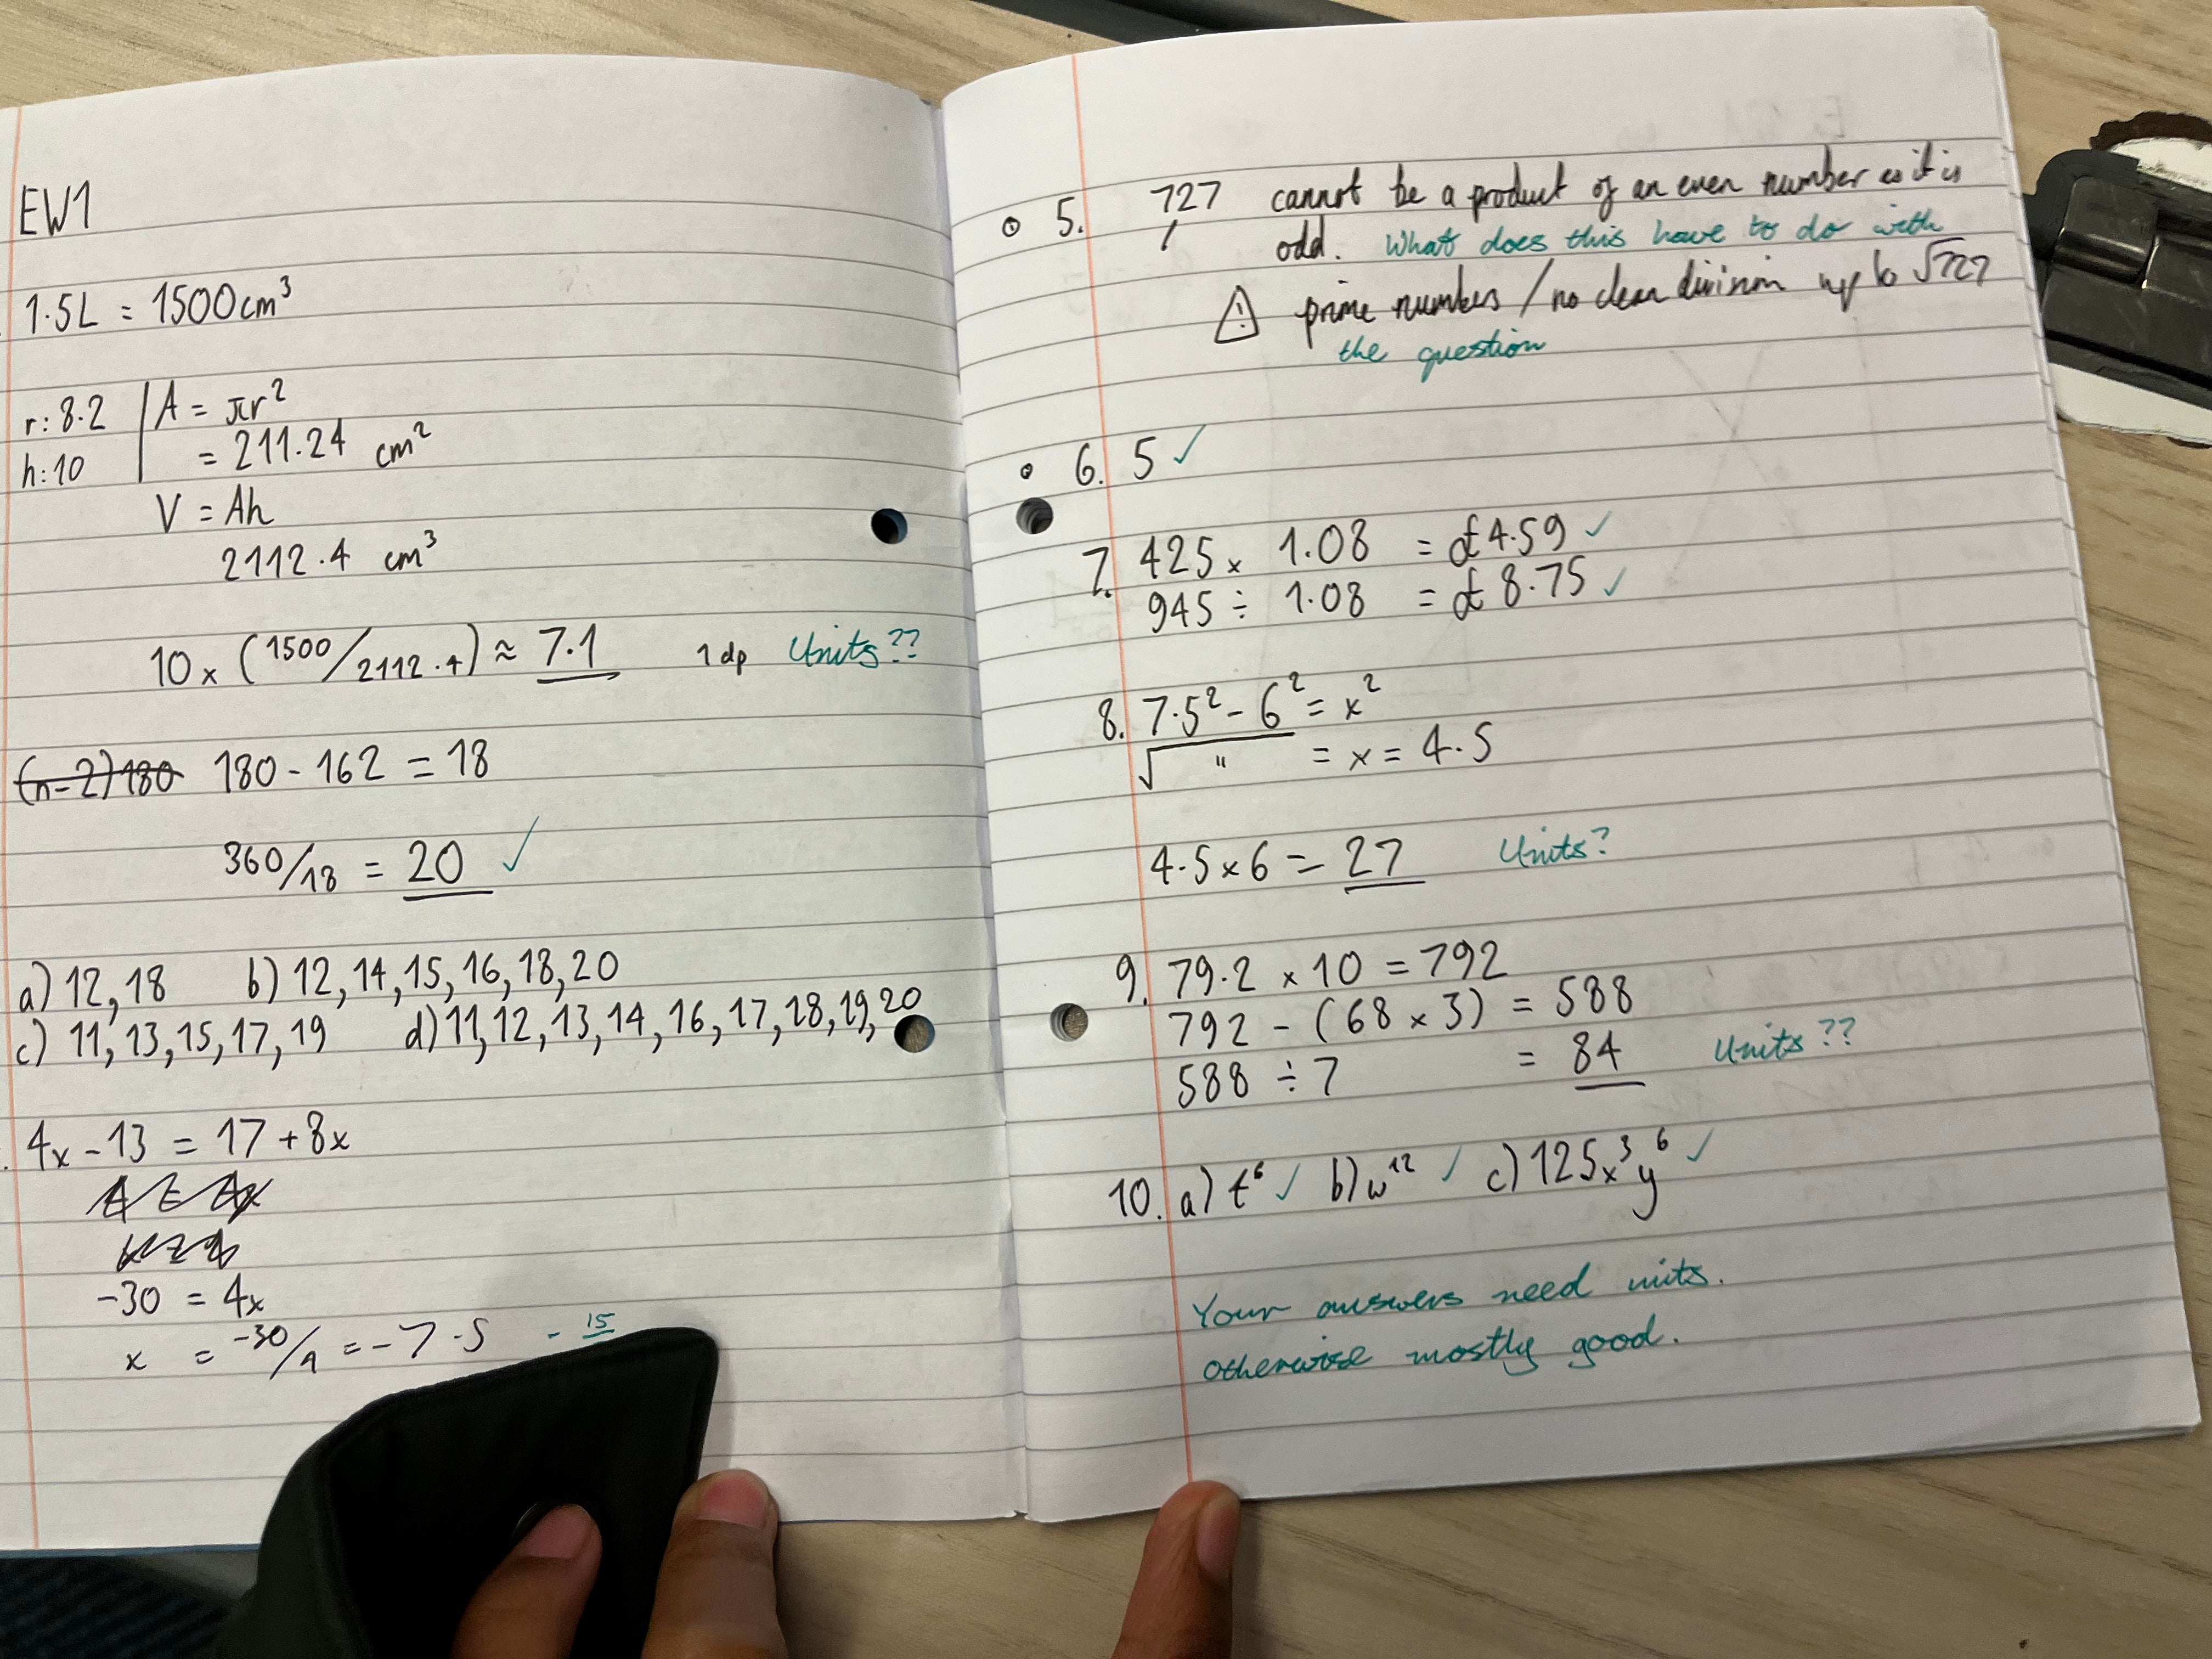 EW1
1.5L = 1500cm³
r: 8.2 | A = πr²
h: 10 | = 211.24 cm²
V = Ah
2112.4 cm³
10 x (1500/2112.4) ≈ 7.1 1 dp Units??
(n-2)180 180 - 162 = 18
360/18 = 20 ✓
a) 12, 18 b) 12, 14, 15, 16, 18, 20
c) 11, 13, 15, 17, 19 d) 11, 12, 13, 14, 16, 17, 18, 19, 20
4x - 13 = 17 + 8x
-30 = 4x
x = -30/4 = -7.5 - 15
5. 727 cannot be a product of an even number as it is
odd. What does this have to do with
⚠ prime numbers / no clean division up to √727
the question
6. 5 ✓
7. 425 x 1.08 = £4.59 ✓
945 ÷ 1.08 = £8.75 ✓
8. 7.5² - 6² = x²
√ " = x = 4.5
4.5 x 6 = 27 Units?
9. 79.2 x 10 = 792
792 - (68 x 3) = 588
588 ÷ 7 = 84 Units??
10. a) t⁶ ✓ b) w¹² ✓ c) 125x³y⁶ ✓
Your answers need units.
otherwise mostly good.